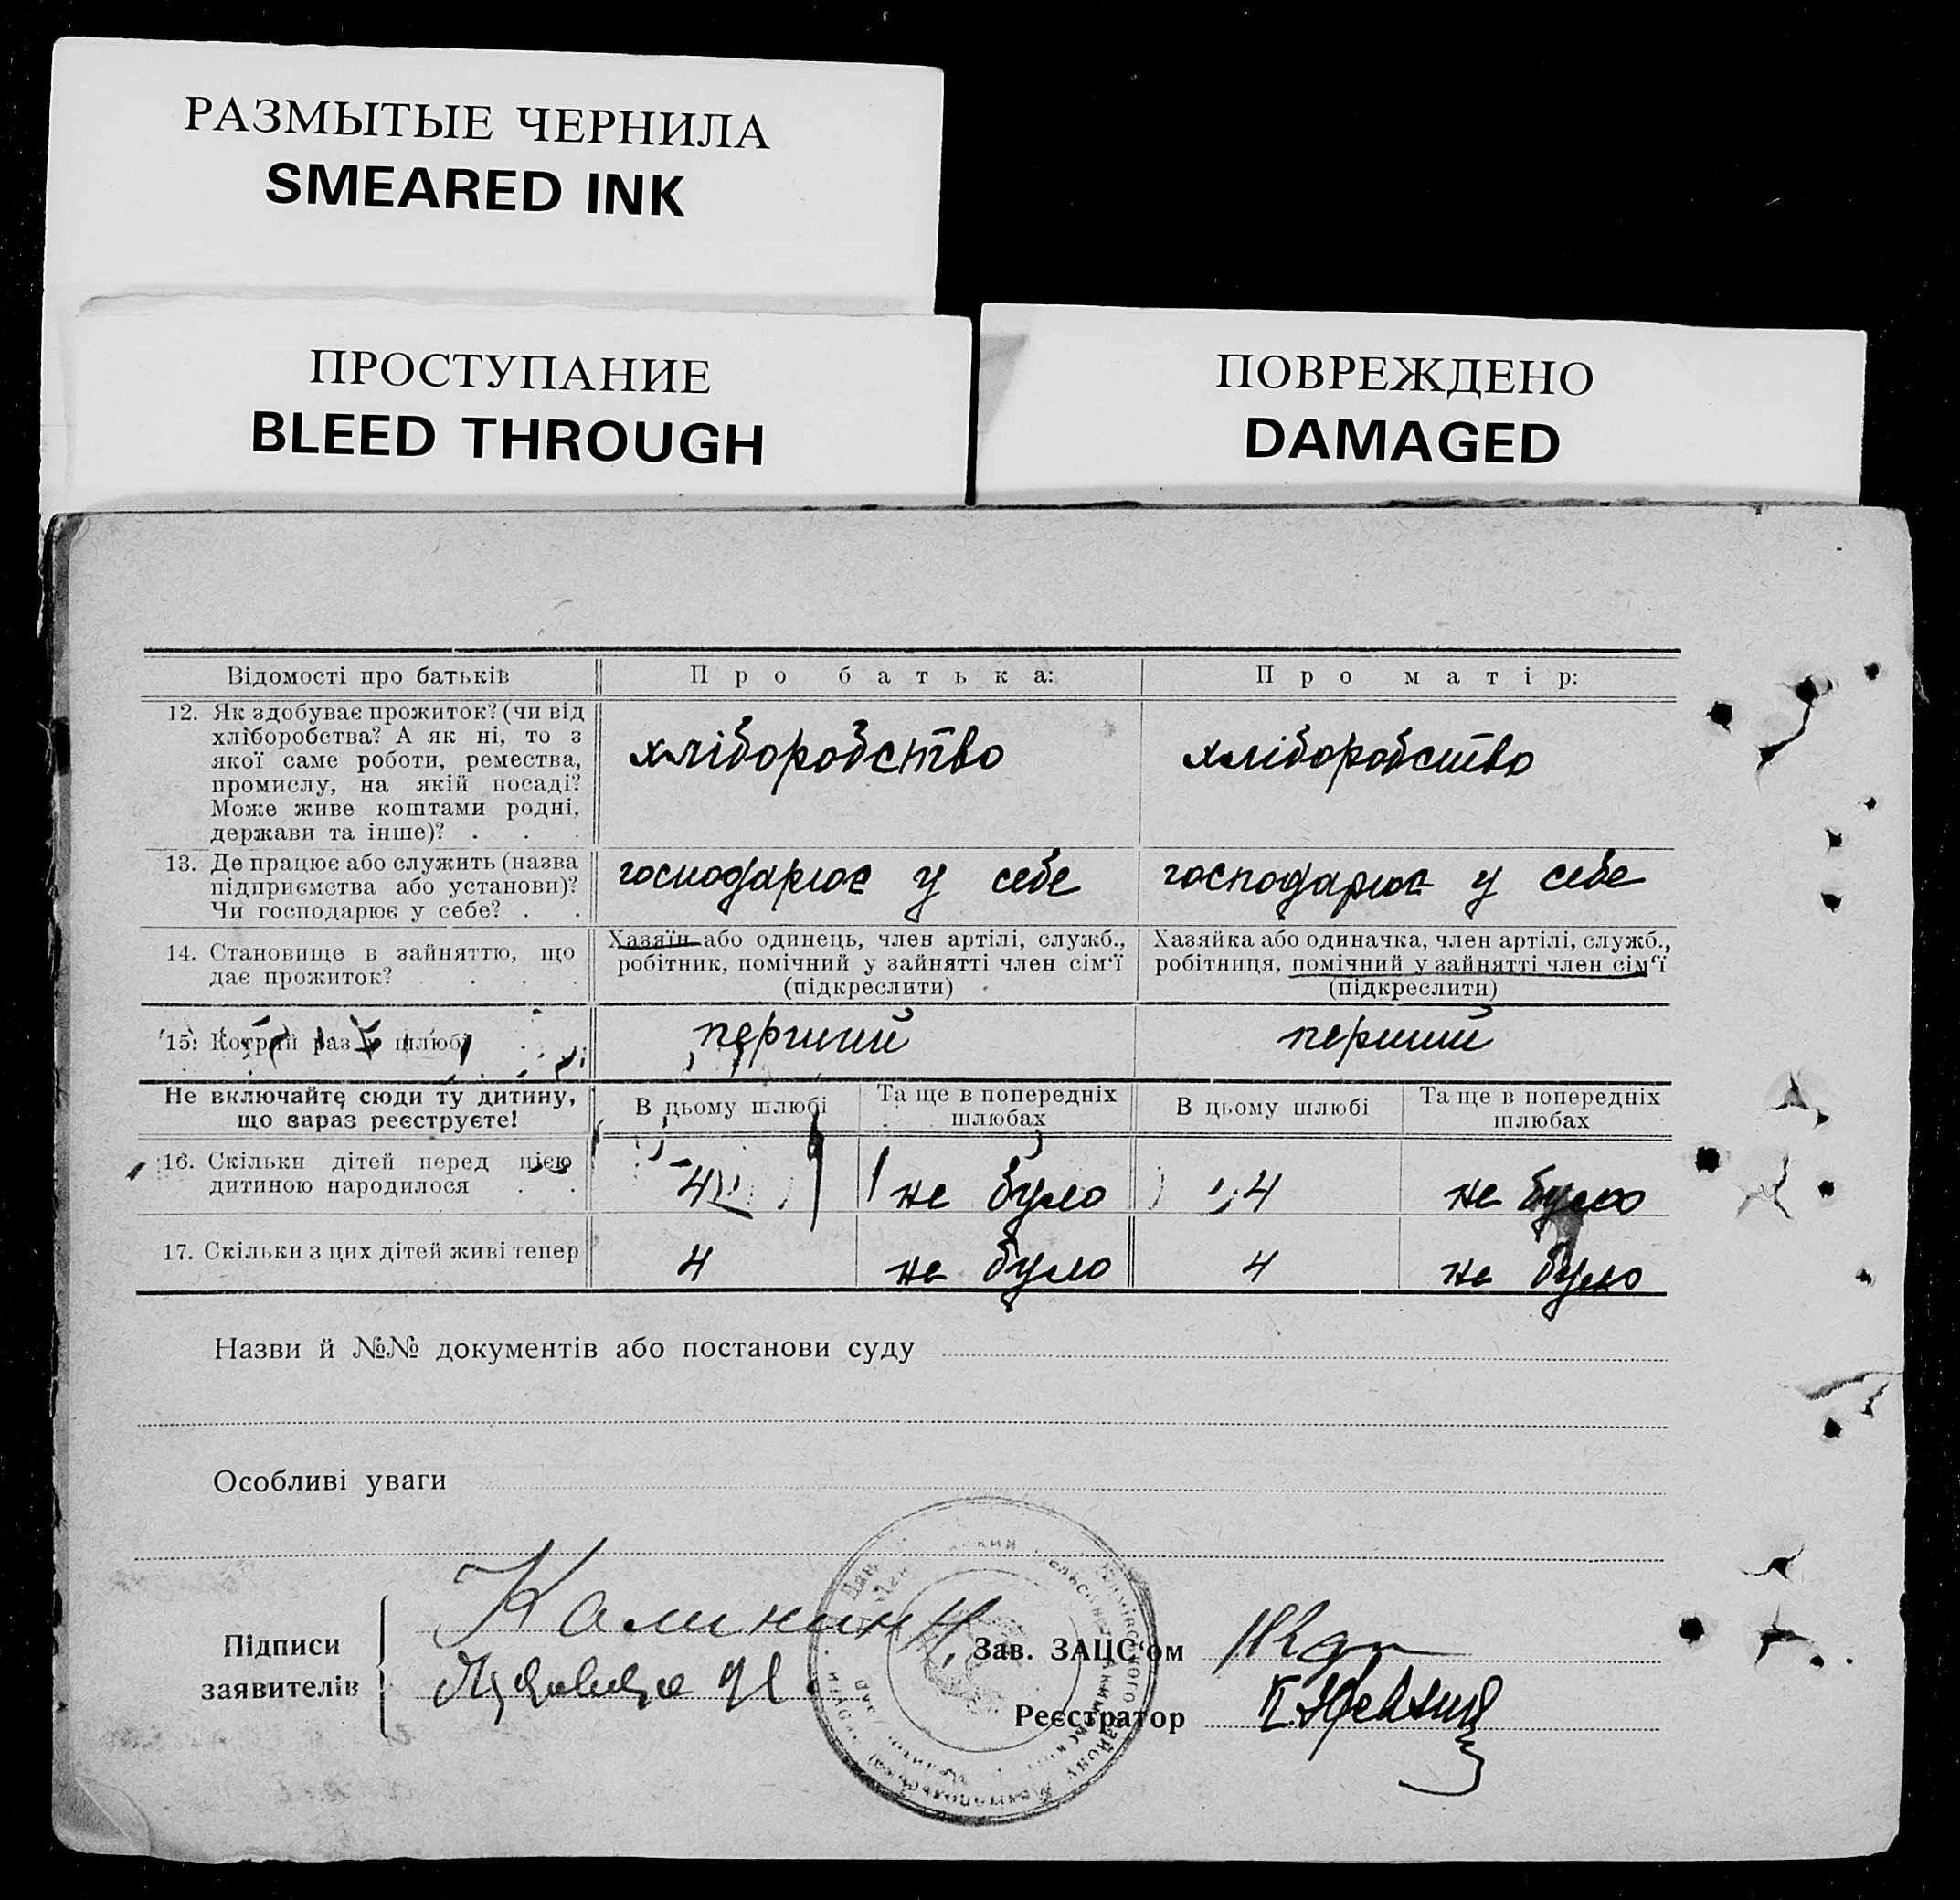 РАЗМЫТЫЕ ЧЕРНИЛА
SMEARED INK
ПРОСТУПАНИЕ
BLEED THROUGH
ПОВРЕЖДЕНО
DAMAGED
Відомості про батьків
Про батька:
Про матір:
12. Як здобуває прожиток? (чи від
хліборобства? А як ні, то з
якої саме роботи, ремества,
промислу, на якій посаді?
Може живе коштами родні,
держави та інше)? . . .
хліборобство
хліборобство
13. Де працює або служить (назва
підприємства або установи)?
Чи господарює у себе? . .
господарює у себе
господарює у себе
14. Становище в зайняттю, що
дає прожиток? . . . .
Хазяїн або одинець, член артілі, служб.,
робітник, помічний у зайнятті член сім‘ї
(підкреслити)
Хазяйка або одиначка, член артілі, служб.,
робітниця, помічний у зайнятті член сім‘ї
(підкреслити)
15. Котрий раз у шлюбі
перший
перший
Не включайте сюди ту дитину,
що зараз реєструєте!
В цьому шлюбі
Та ще в попередніх
шлюбах
В цьому шлюбі
Та ще в попередніх
шлюбах
16. Скільки дітей перед цією
дитиною народилося . .
4
не було
4
не було
17. Скільки з цих дітей живі тепер
4
не було
4
не було
Назви й №№ документів або постанови суду
Особливі уваги
Підписи
заявителів
Калинин
Зав. ЗАЦС‘ом
Реєстратор